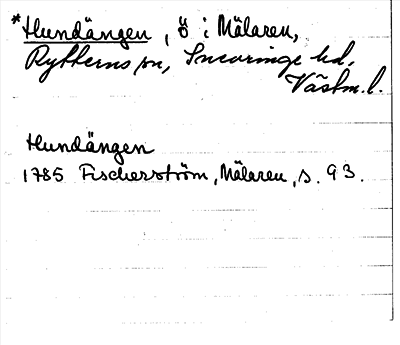 *Hundängen, ö i Mälaren,
Rytterns sn, Snevringe hd,
Västm. l.
Hundängen
1785 Fischerström, Mälaren, s. 93.